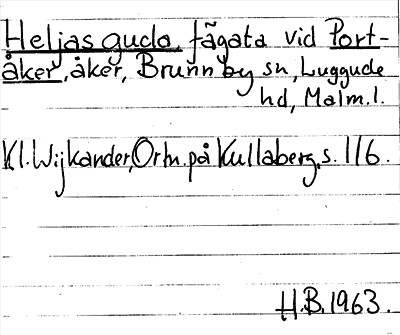 Heljas gudo, fägata vid Port-
åker, åker, Brunnby sn, Luggude
hd, Malm. l.
Kl. Wijkander, Ortn. på Kullaberg, s. 116.
H.B. 1963.